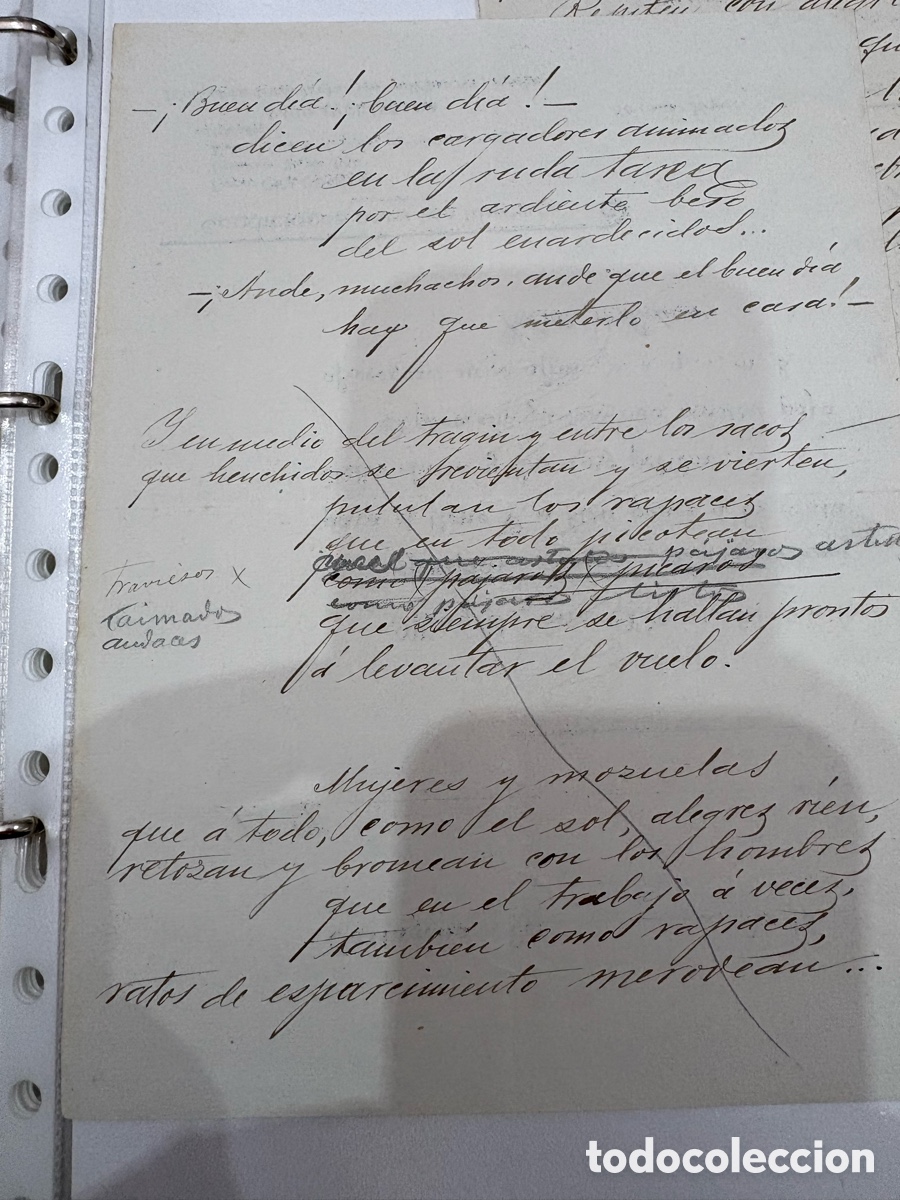 Repiten con
—¡Buen día! ¡buen día!—
dicen los cargadores animados
en la ruda tarea
por el ardiente beso
del sol enardecidos...
—¡Ande, muchachos, ande que el buen día
hay que meterlo en casa!—
Y en medio del tragin y entre los sacos
que henchidos se revientan y se vierten,
pululan los rapaces
que en todo picotean
que astutos pájaros
como pájaros pícaros
como pájaros listos
traviesos x
taimados
audaces
que siempre se hallan prontos
á levantar el vuelo.
Mujeres y mozuelas
que á todo, como el sol, alegres ríen,
retozan y bromean con los hombres
que en el trabajo á veces,
también como rapaces,
ratos de esparcimiento merodean...
todocoleccion